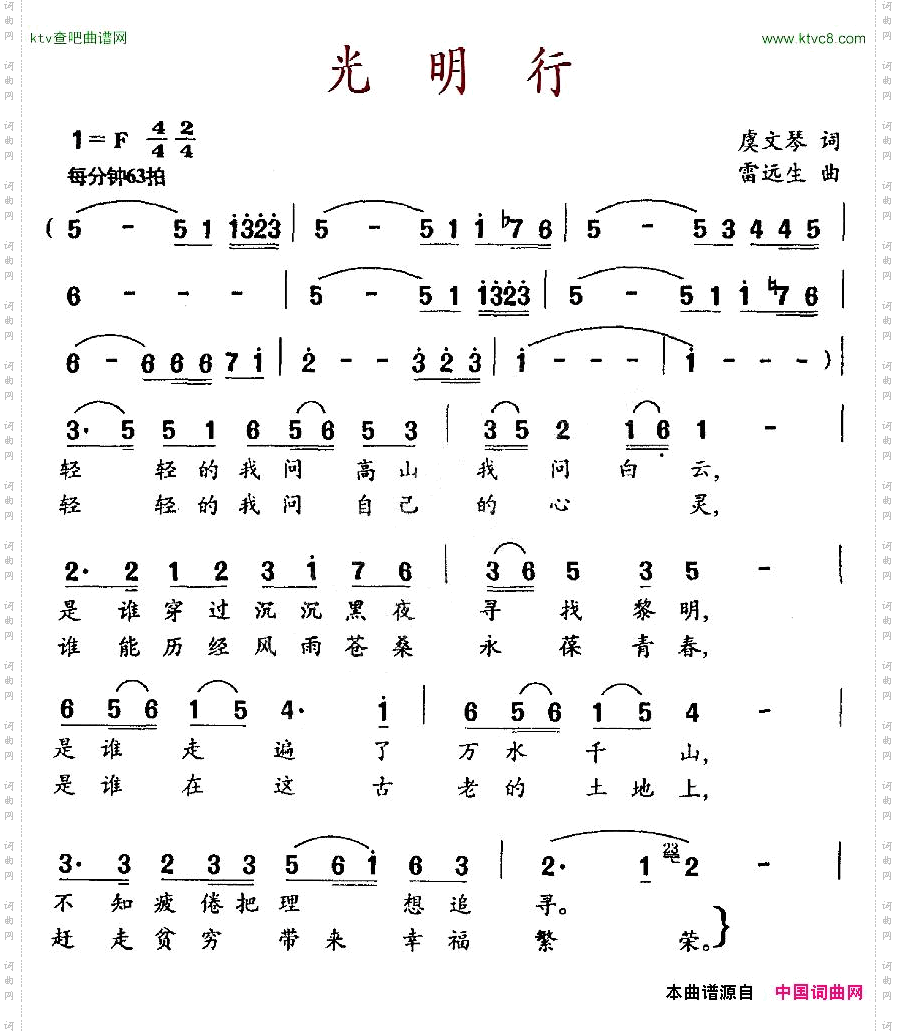 ktv查吧曲谱网 www.ktvc8.com
光 明 行
1=F 4/4 2/4 虞文琴 词
每分钟63拍 雷远生 曲
( 5 - 5 1 1323 | 5 - 5 1 1 ♭7 6 | 5 - 5 3 4 4 5 |
6 - - - | 5 - 5 1 1323 | 5 - 5 1 1 ♮7 6 |
6 - 6 6 6 7 1 | 2 - - 3 2 3 | 1 - - - | 1 - - ) |
3· 5 5 1 6 5 6 5 3 | 3 5 2 1 6 1 - |
轻 轻的我问 高山 我 问 白 云,
轻 轻的我问 自己 的 心 灵,
2· 2 1 2 3 1 7 6 | 3 6 5 3 5 - |
是 谁穿过沉沉黑夜 寻 找 黎明,
谁 能历经风雨苍桑 永 葆 青春,
6 5 6 1 5 4· 1 | 6 5 6 1 5 4 - |
是 谁 走 遍 了 万 水 千 山,
是 谁 在 这 古 老 的 土 地 上,
3· 3 2 3 3 5 6 1 6 3 | 2· 1 23 2 - |
不 知疲倦把理 想追 寻。
赶 走贫穷 带来 幸福 繁 荣。}
本曲谱源自 中国词曲网